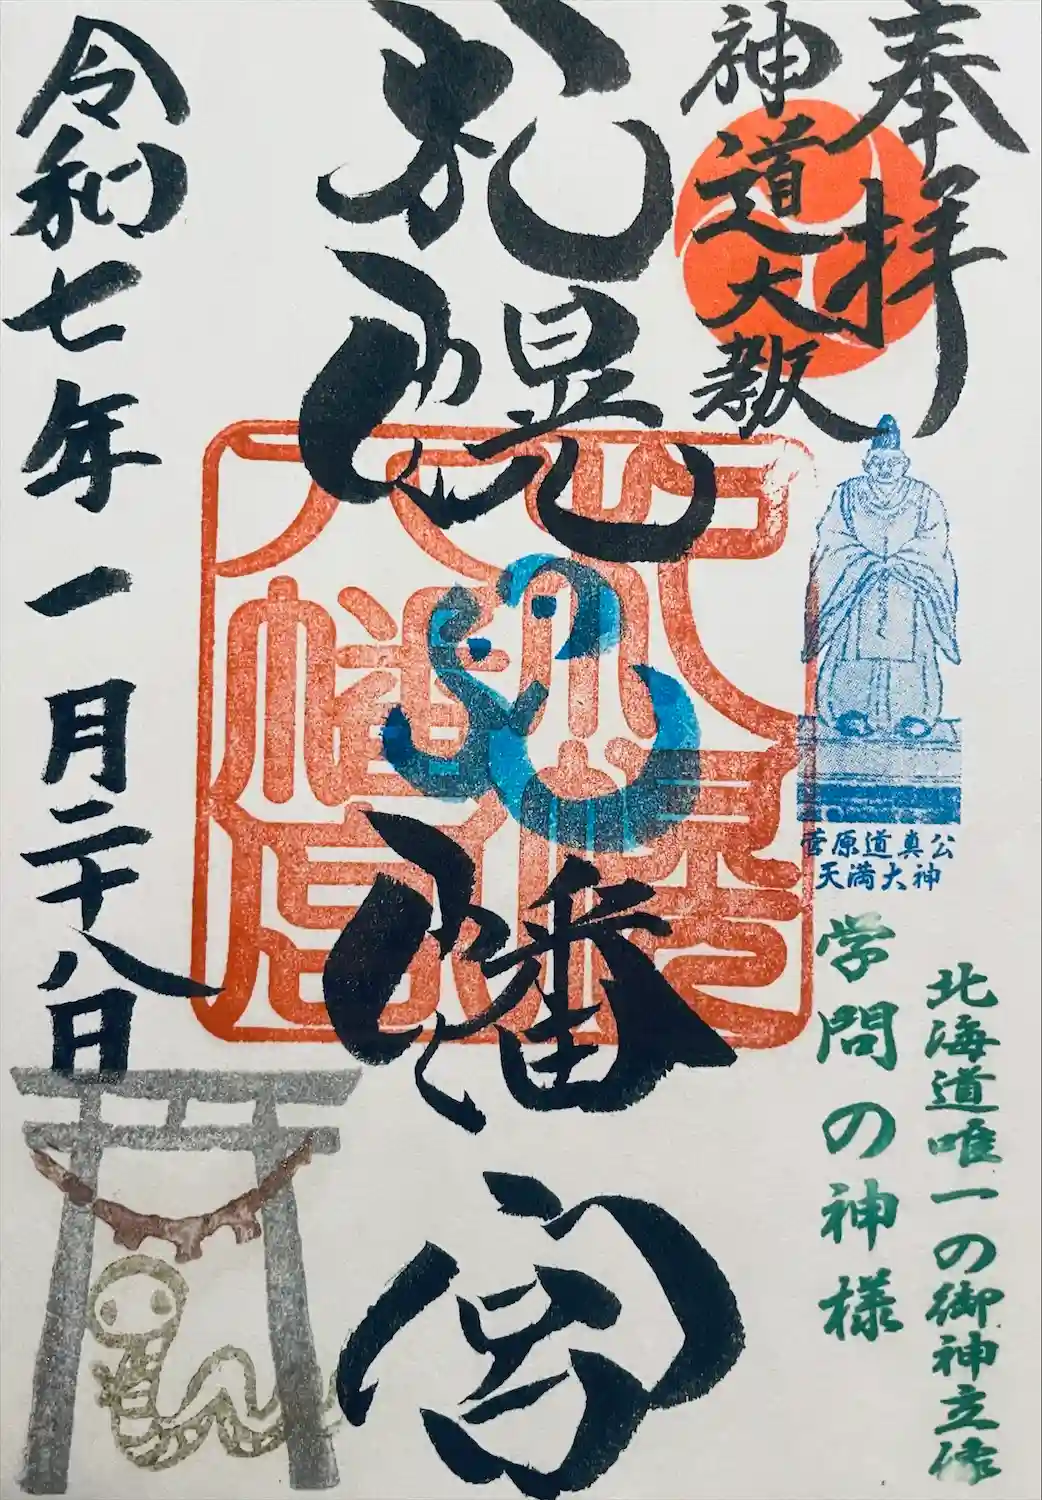 奉拝
神道大教
札幌八幡宮
菅原道真公
天満大神
北海道唯一の御神立像
学問の神様
令和七年一月二十八日